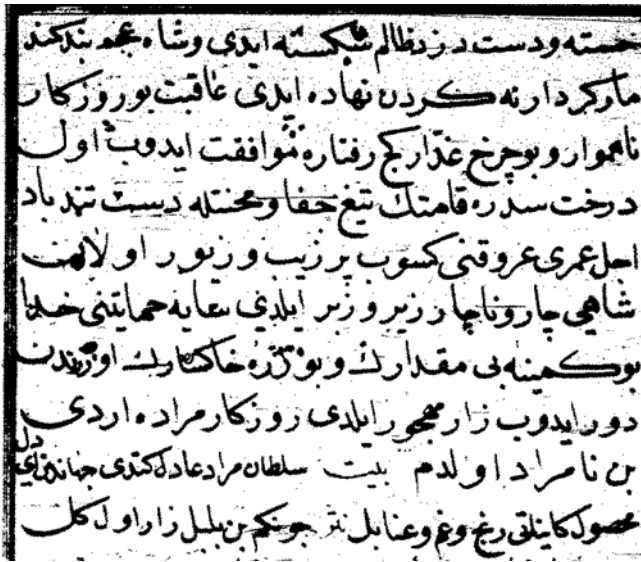 خسته ودست دزد ظالم شکسته ایدی وشاه عجم بند کمند
مارکردارنه کردن نهاده ایدی عاقبت بوروزکار
ناهموار وبوچرخ غدّار کج رفتاره موافقت ایدوب اول
درخت سدره قامتك تیغ جفا ومحنتله دست تند باد
اجل عمری عروقنی کسوب برزیب وزیور اولان
شاهی چار وناچار زیر وزبر ایلدی سایه حمایتنی
بوکمینه بی مقدارك وبو ذرّه خاکسارك اوزرندن
دور ایدوب زار مهجور ایلدی روزکار مراده اردی
بن نامراد اولدم بیت سلطان مراد عادل کتدی جهاندن
محصول کاینلتی رنج وغم وعنابل نثر چونکم بن بلبل زار اول کل